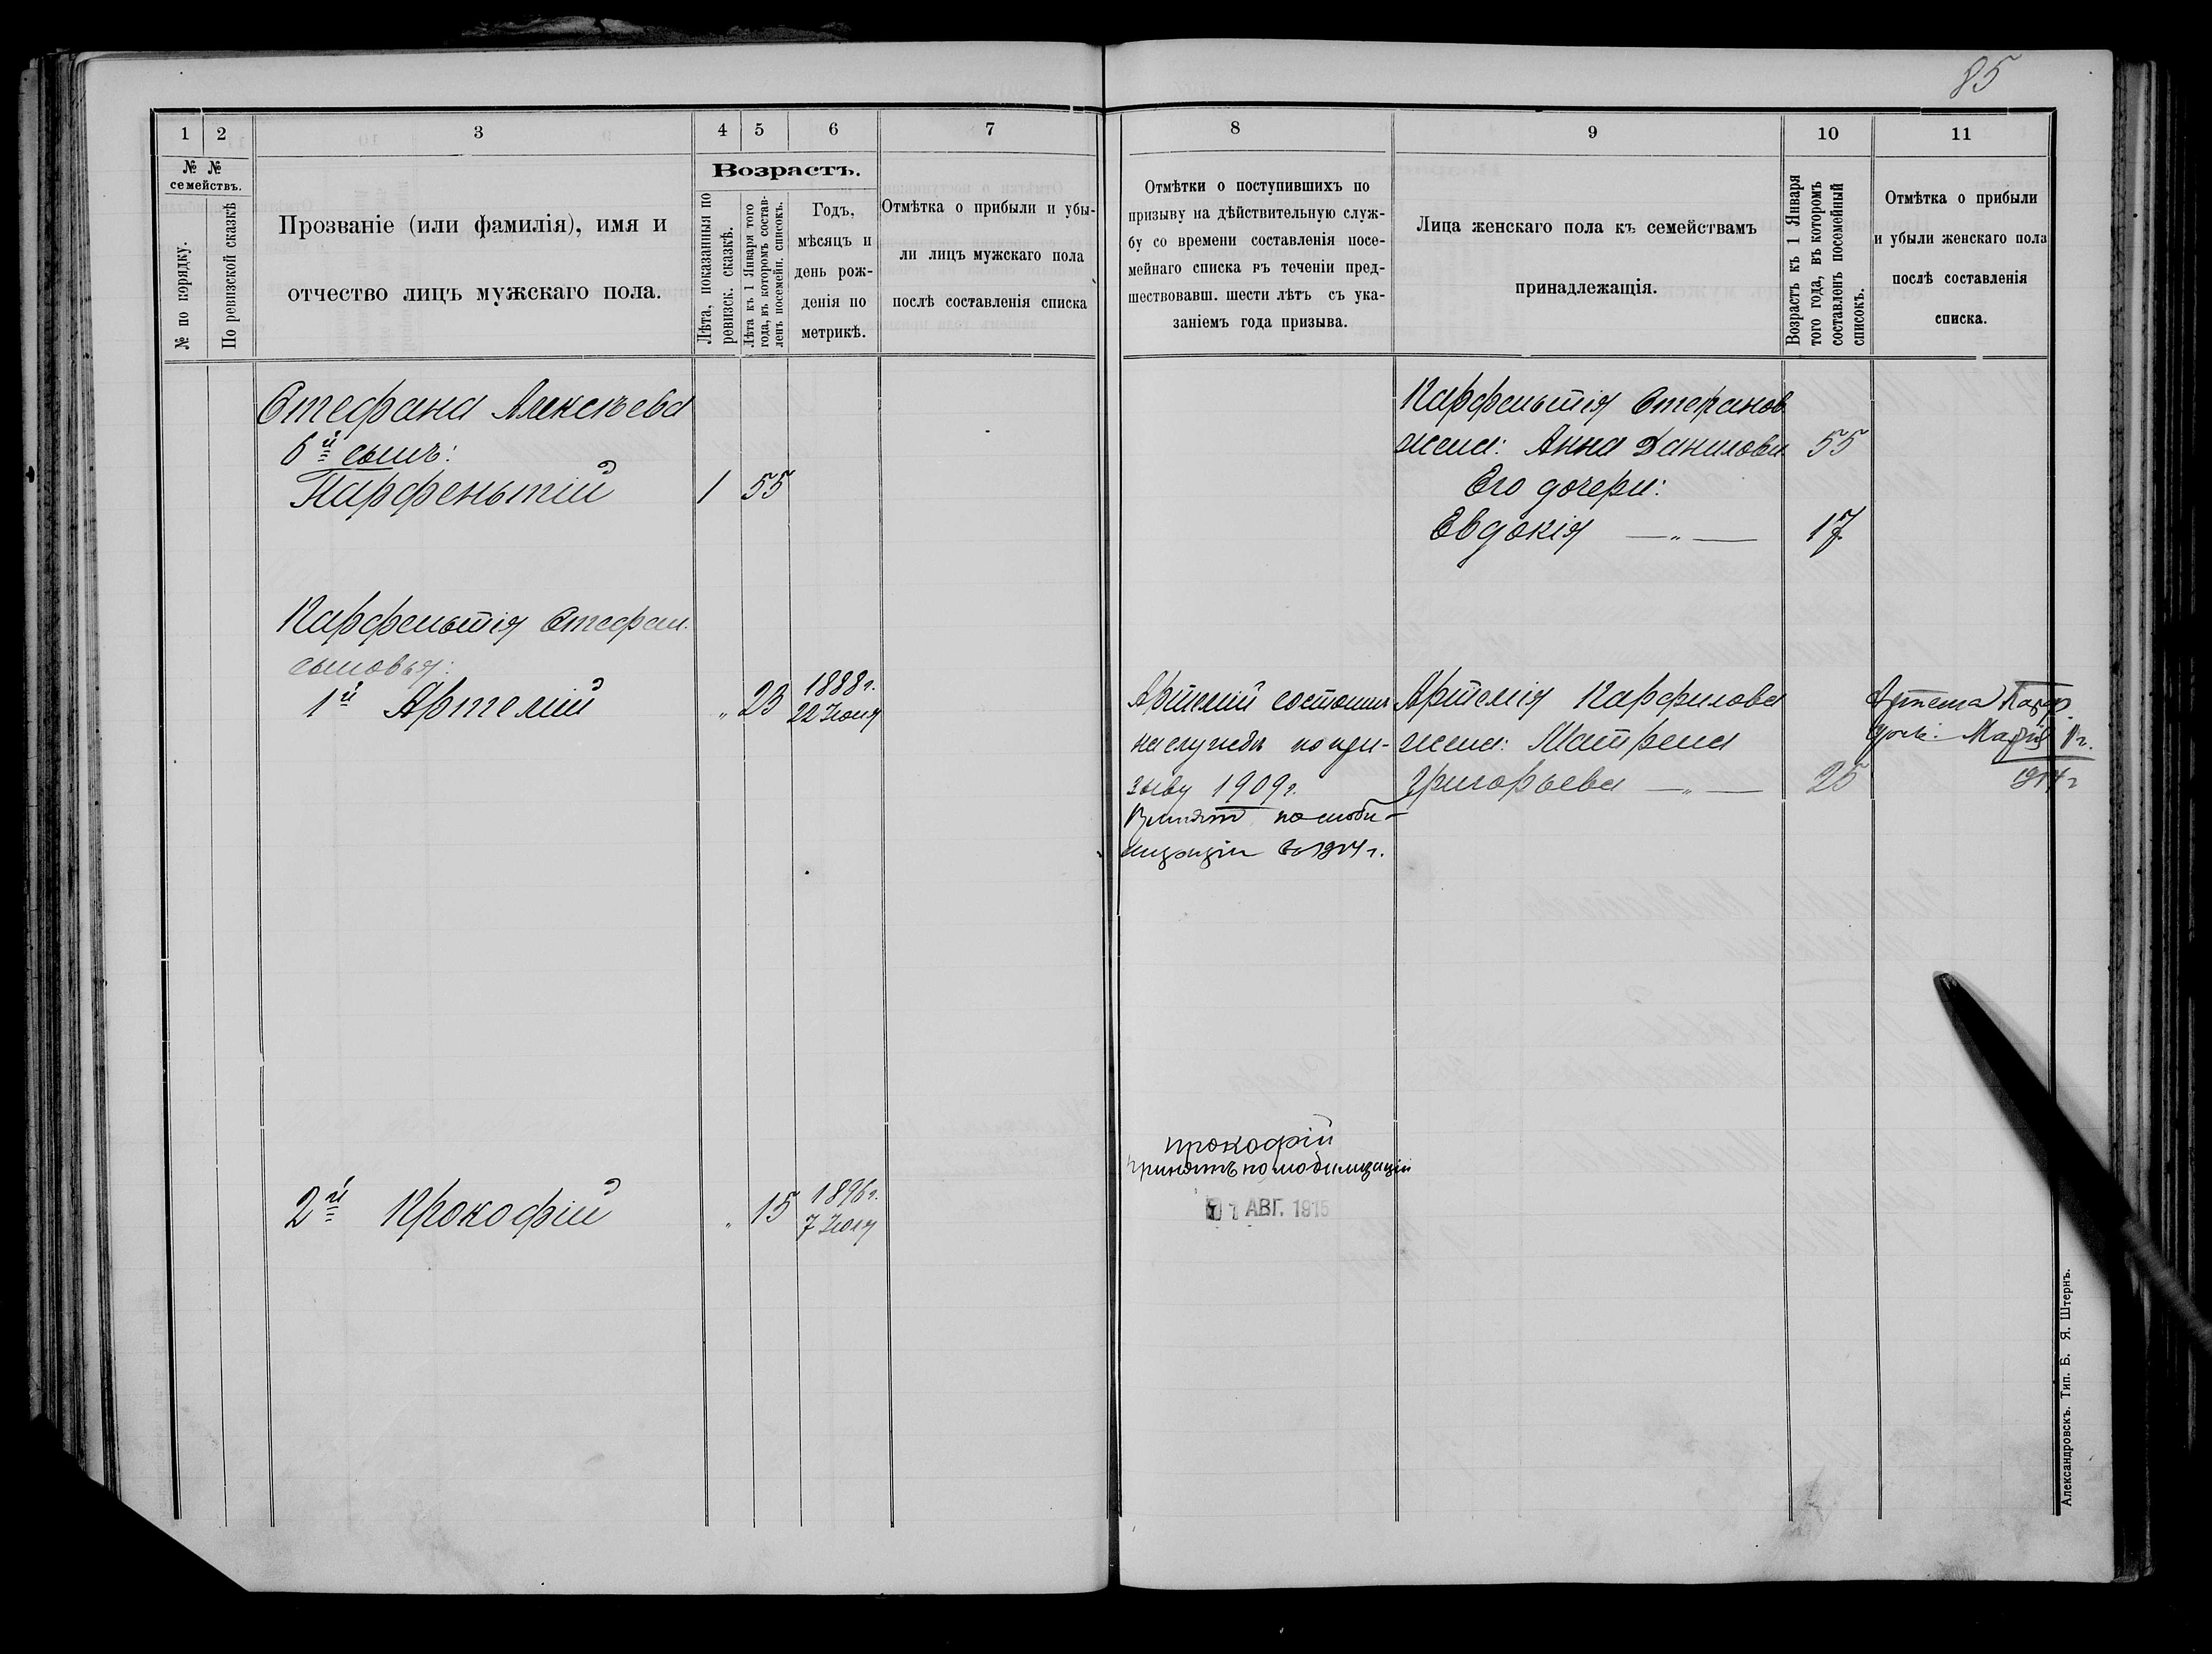 85
1 2 3 4 5 6 7
№ №
семействъ.
№ по порядку.
По ревизской сказкѣ
Прозваніе (или фамилія), имя и
отчество лицъ мужскаго пола.
Возрастъ.
Лѣта, показанныя по
ревизск. сказкѣ.
Лѣта къ 1 Января того
года, въ которомъ состав-
ленъ посемейн. списокъ.
Годъ,
мѣсяцъ и
день рож-
денія по
метрикѣ.
Отмѣтка о прибыли и убы-
ли лицъ мужскаго пола
послѣ составленія списка
Стефана Алексѣева
6й сынъ:
Парфентій 1 55
Парфентія Стефан.
сыновья:
1й Артемій „ 23 1888 г.
22 Іюня
2й Прокофій „ 15 1896 г.
7 Іюля
8 9 10 11
Отмѣтки о поступившихъ по
призыву на дѣйствительную служ-
бу со времени составленія посе-
мейнаго списка въ теченіи пред-
шествовавш. шести лѣтъ съ ука-
заніемъ года призыва.
Лица женскаго пола къ семействамъ
принадлежащія.
Возрастъ къ 1 Января
того года, въ которомъ
составленъ посемейный
списокъ.
Отмѣтка о прибыли
и убыли женскаго пола
послѣ составленія
списка.
Парфентія Стефанов.
жена: Анна Данилова 55
Его дочери:
Евдокія — „ — 17
Артемій состоитъ
на службѣ по при-
зыву 1909 г.
Принятъ по моби-
лизаціи въ 1914 г.
Артемія Парфилова
жена: Матрена
Григорьева — „ — 25
Артема Парф.
дочь: Марія 1 г.
1914 г
Прокофій
принятъ по мобилизаціи
АВГ. 1915
Александровскъ. Тип. Б. Я. Штернъ.